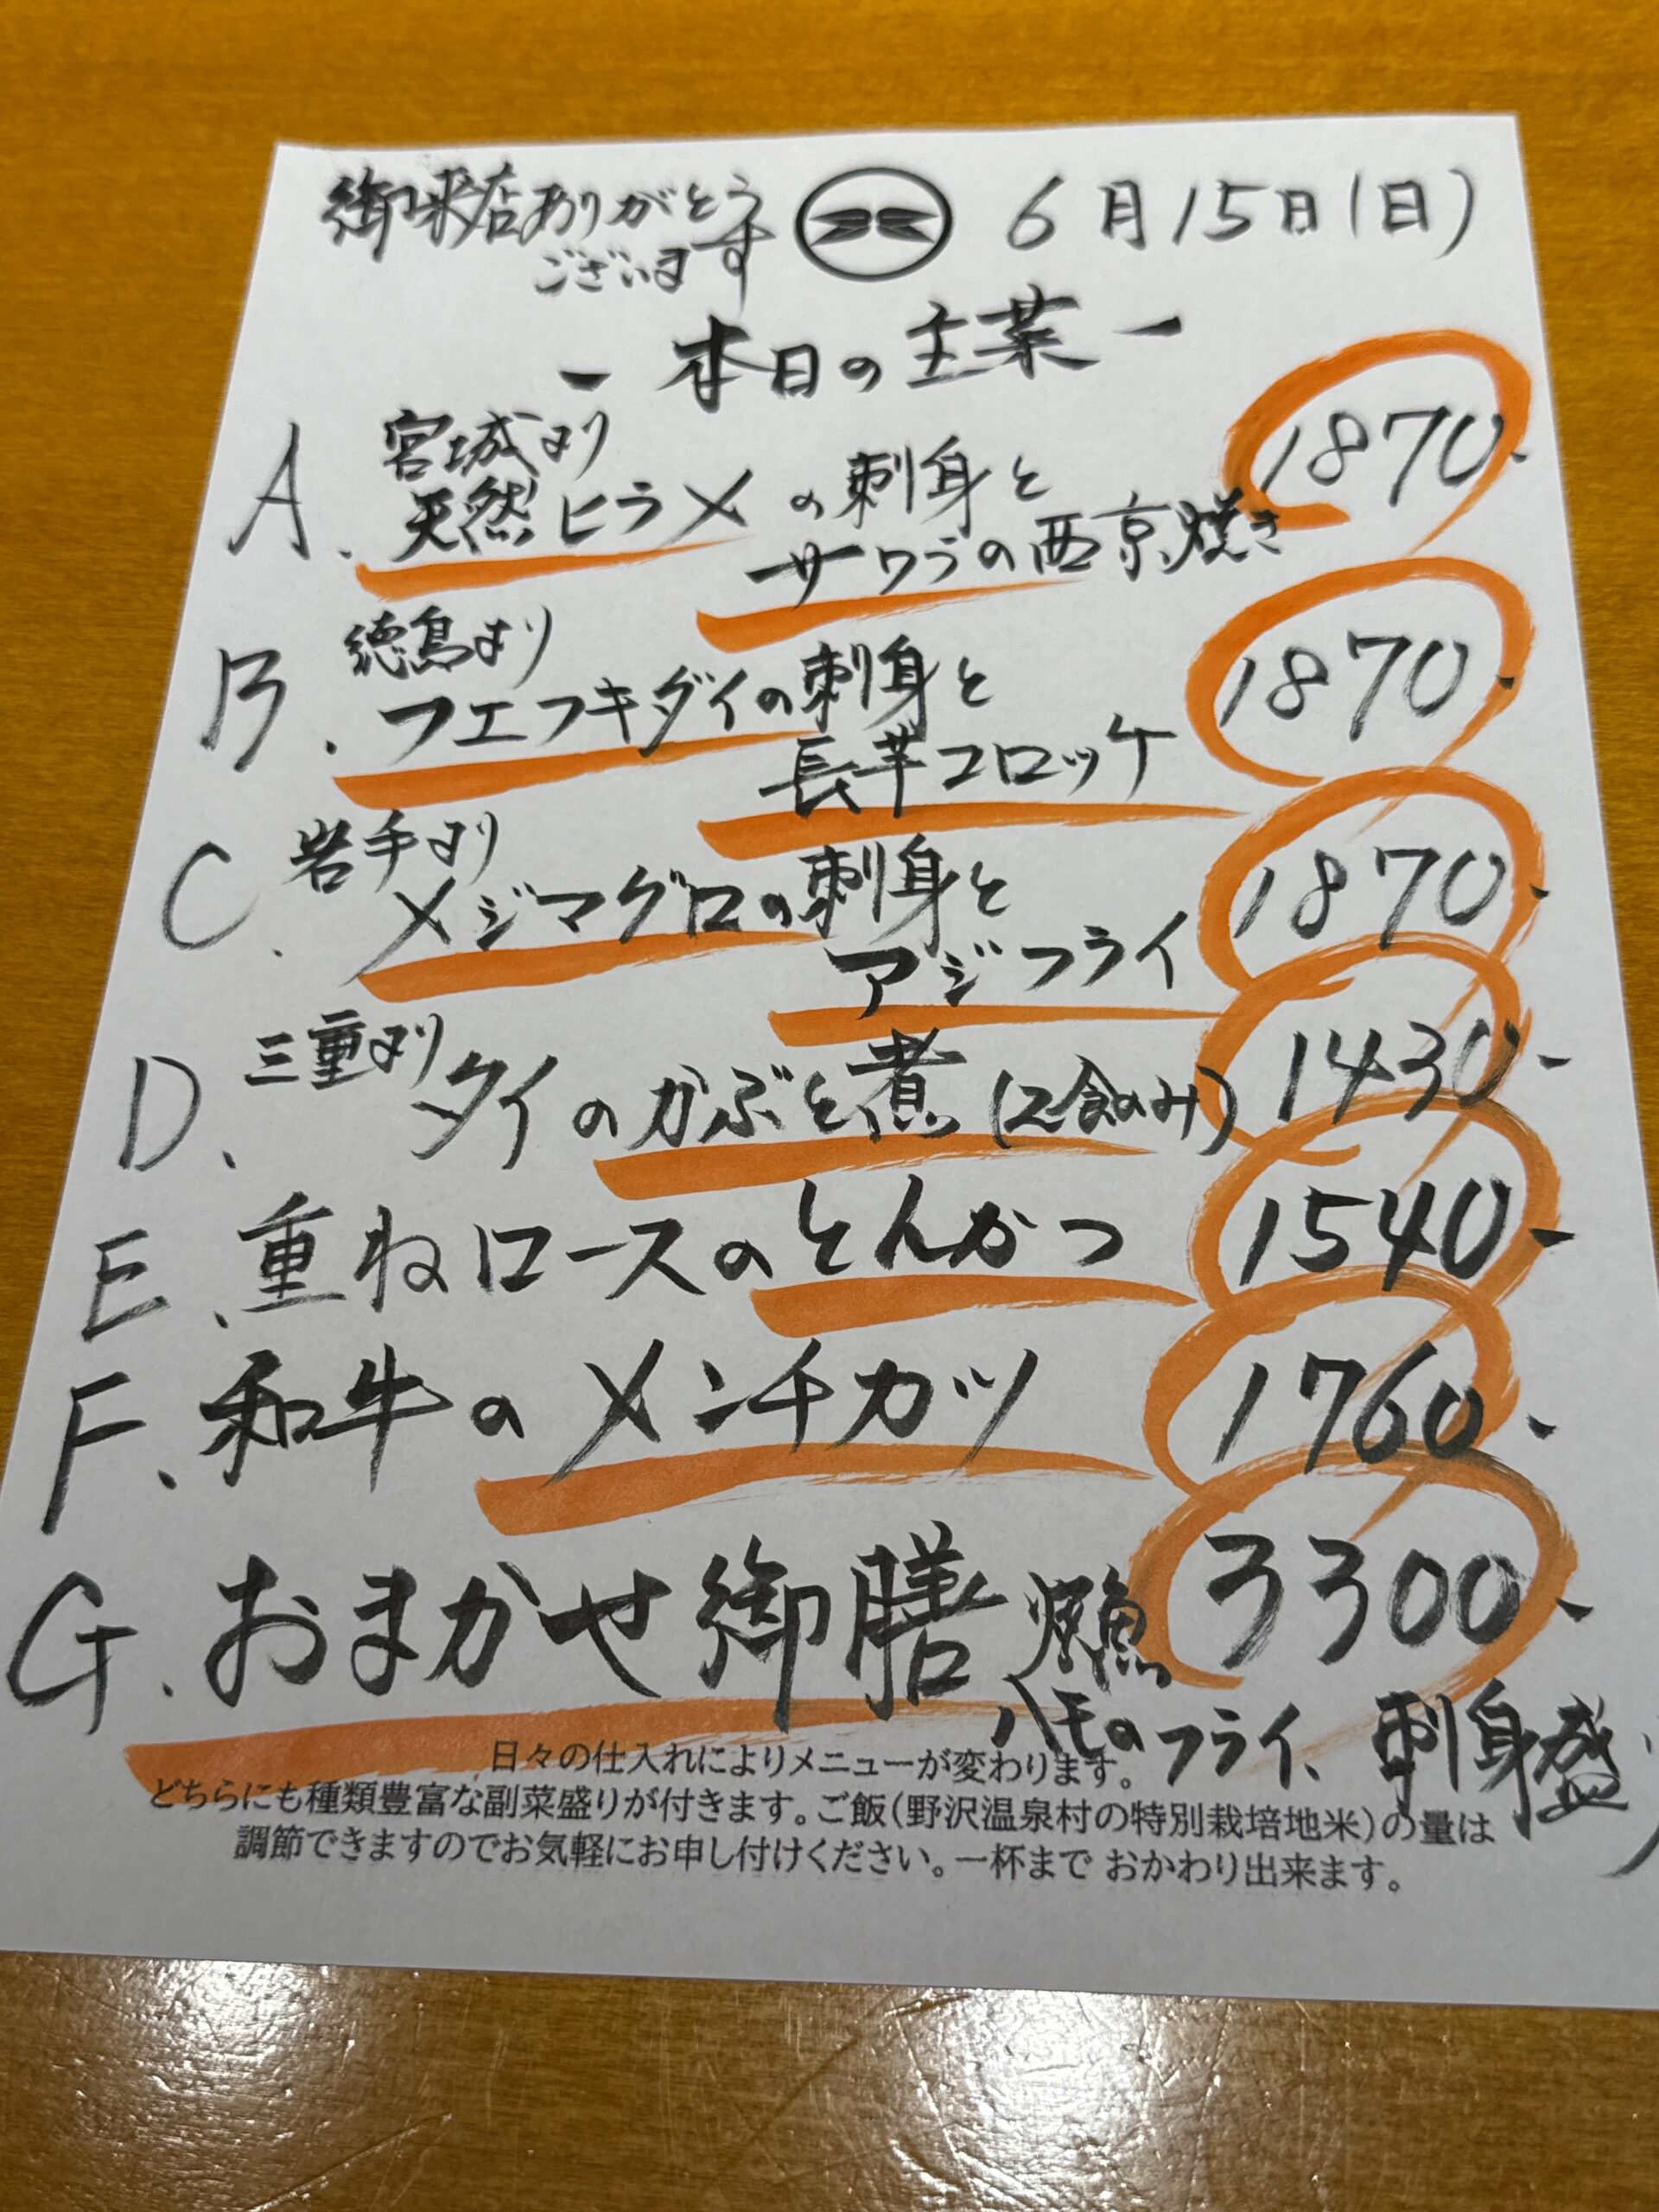 御来店ありがとう
ございます
6月15日(日)
ー本日の主菜ー
A. 宮城より
天然ヒラメの刺身と
サワラの西京焼き
1870.
B. 徳島より
フエフキダイの刺身と
長芋コロッケ
1870.
C. 岩手より
メジマグロの刺身と
アジフライ
1870.
D. 三重より タイのかぶと煮(2食のみ) 1430-
E. 重ねロースのとんかつ 1540-
F. 和牛のメンチカツ 1760.
G. おまかせ御膳 3300.
焼魚
ハモのフライ、刺身盛り
日々の仕入れによりメニューが変わります。
どちらにも種類豊富な副菜盛りが付きます。ご飯(野沢温泉村の特別栽培地米)の量は
調節できますのでお気軽にお申し付けください。一杯まで おかわり出来ます。